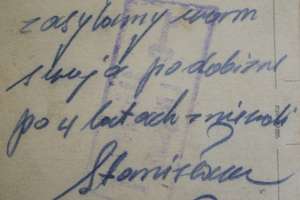 zasyłamy wam
swoją podobiznę
po 4 latach z niewoli
Stanisław